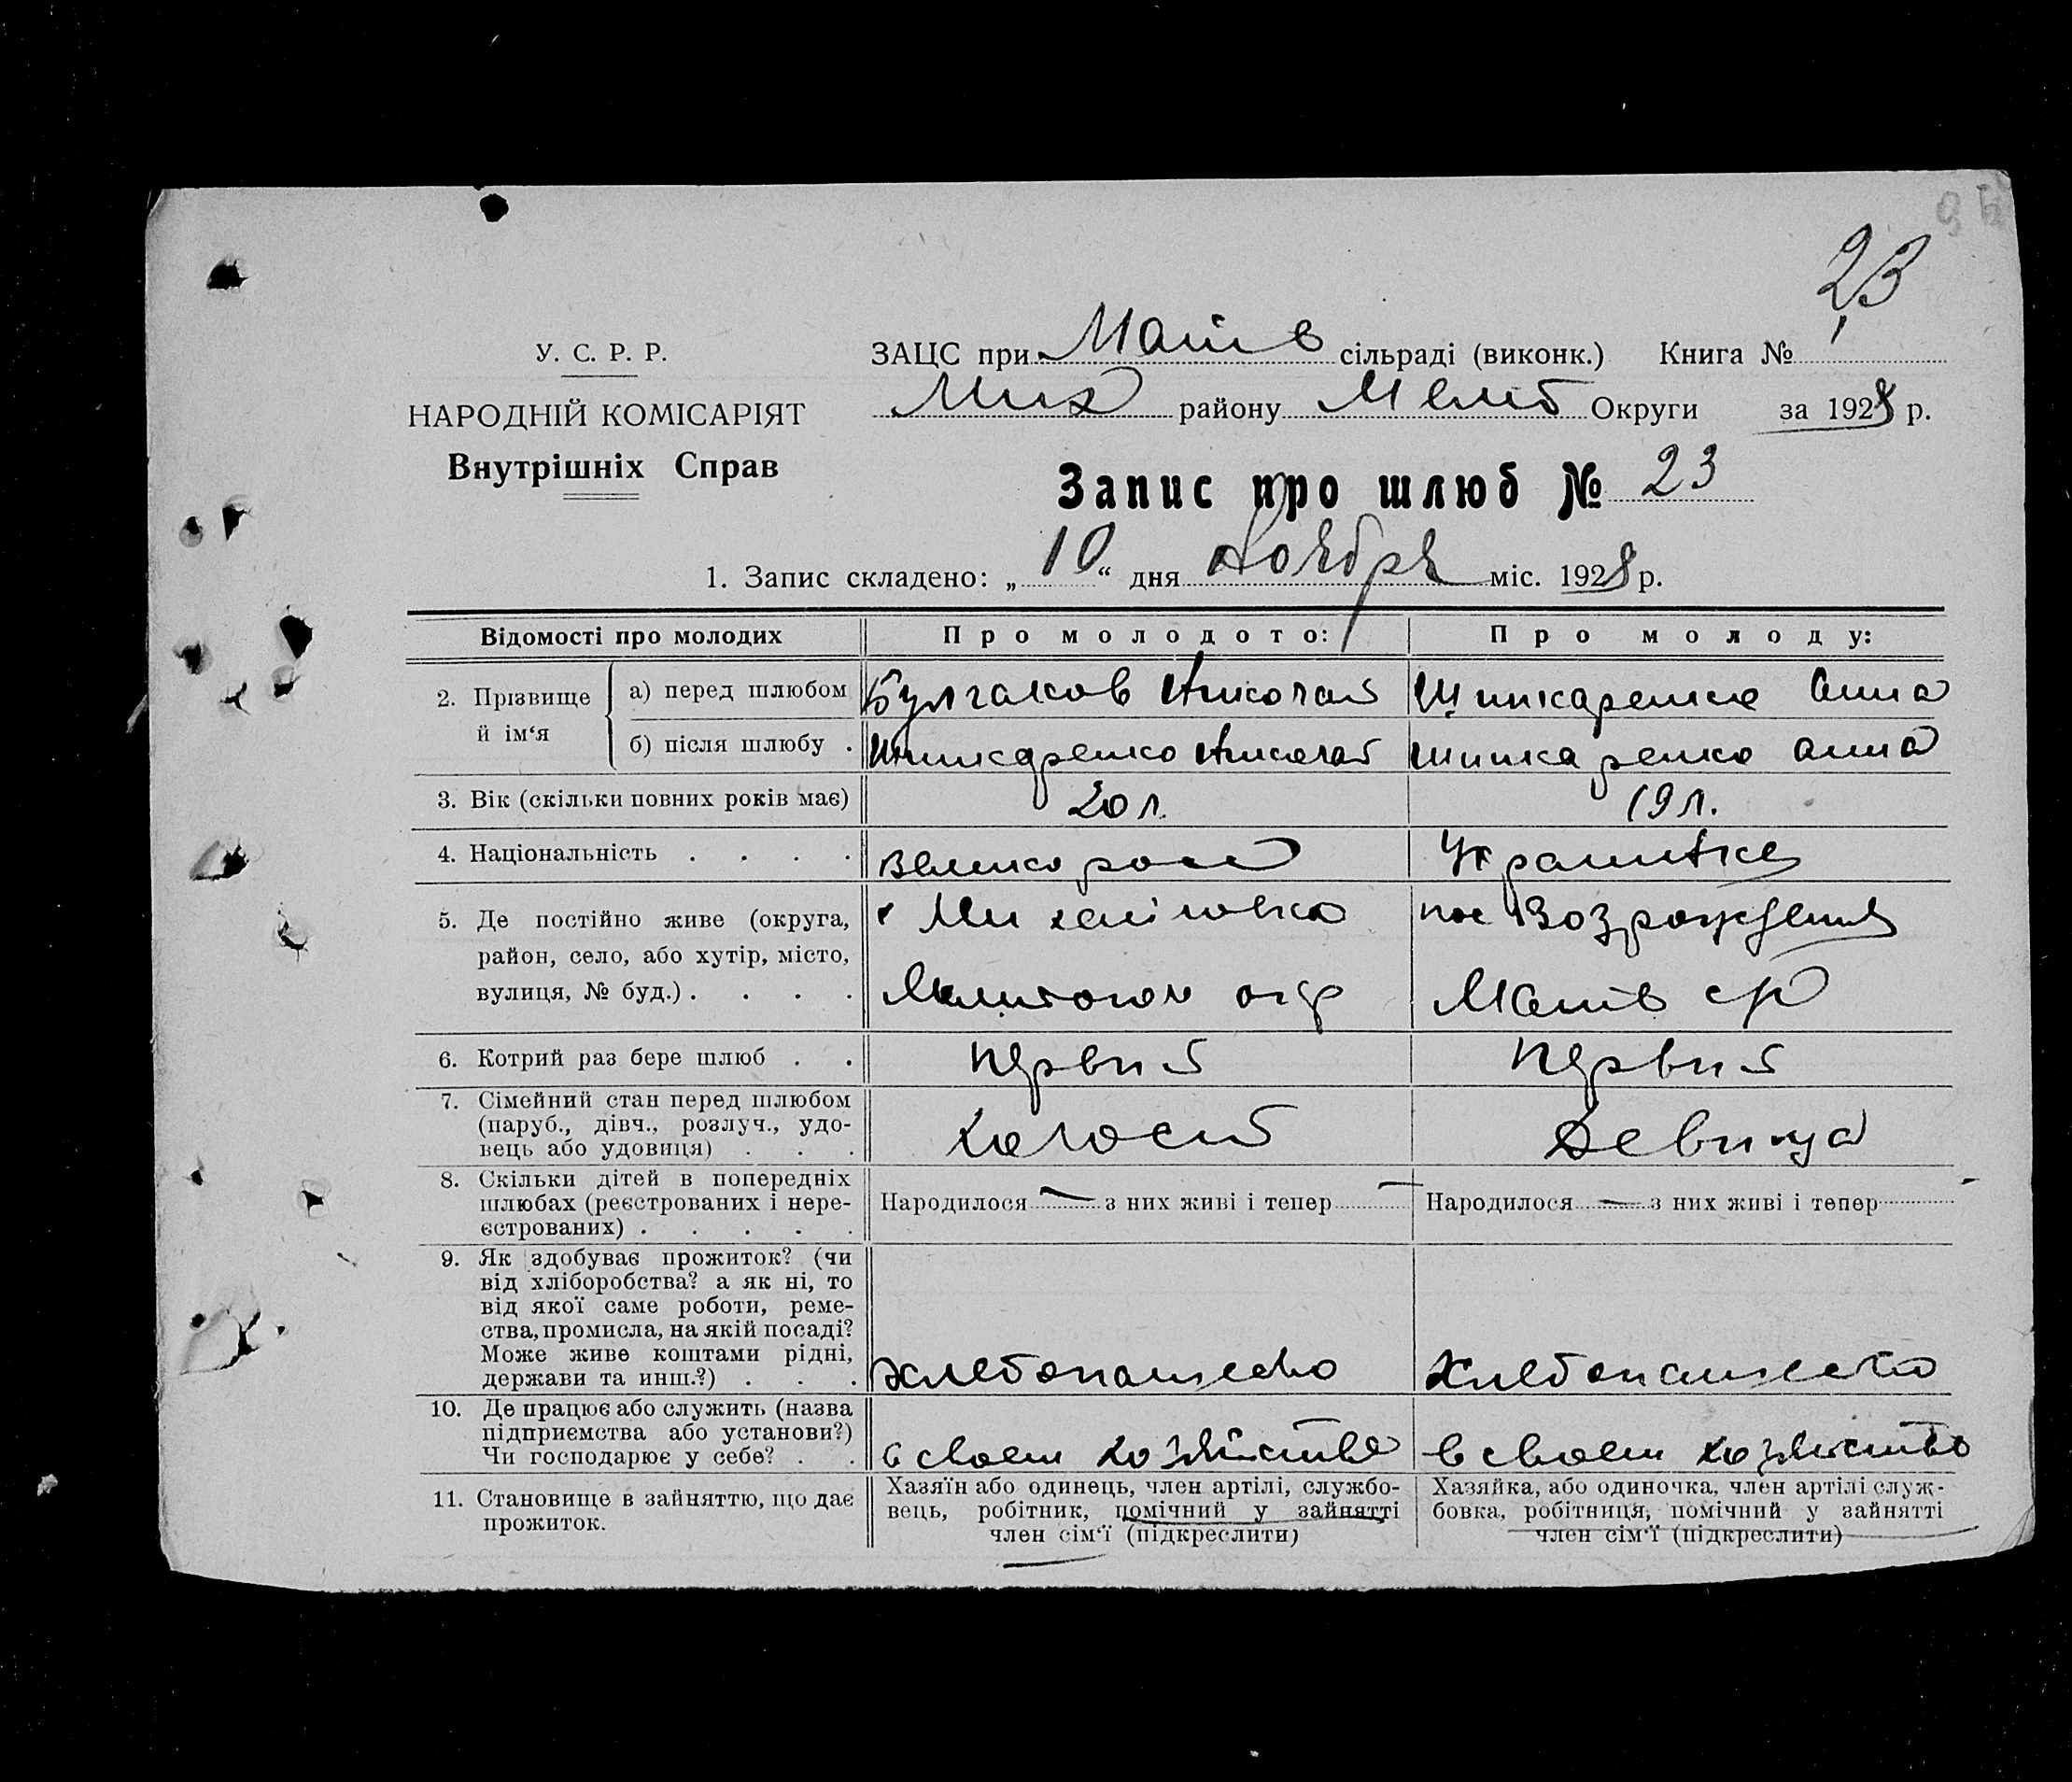 23
У. С. Р. Р.
НАРОДНІЙ КОМІСАРІЯТ
Внутрішніх Справ
ЗАЦС при сільраді (виконк.) Книга №
Мих району Меліт Округи за 1928 р.
Запис про шлюб № 23
1. Запис складено: „ 10 “ дня Ноября міс. 1928 р.
Відомості про молодих Про молодого: Про молоду:
2. Прізвище й ім‘я
а) перед шлюбом Булгаков Николай Шинкаренко Анна
б) після шлюбу . Шинкаренко Николай Шинкаренко Анна
3. Вік (скільки повних років має) 20 л. 19 л.
4. Національність . . . . Великоросс Украинка
5. Де постійно живе (округа, район, село, або хутір, місто, вулиця, № буд.) . . . .
с Михайловка
Мелитопол окр
пос Возрождения
6. Котрий раз бере шлюб . . Первий Первий
7. Сімейний стан перед шлюбом
(паруб., дівч., розлуч., удо-
вець або удовиця) . . . Холостой Девица
8. Скільки дітей в попередніх
шлюбах (реєстрованих і нере-
єстрованих) . . . . .
Народилося — з них живі і тепер —
Народилося — з них живі і тепер -
9. Як здобуває прожиток? (чи
від хліборобства? а як ні, то
від якої саме роботи, реме-
ства, промисла, на якій посаді?
Може живе коштами рідні,
держави та инш.?) . . . Хлебопашество Хлебопашество
10. Де працює або служить (назва
підприємства або установи?)
Чи господарює у себе? . . в своем хозяйстве в своем хозяйстве
11. Становище в зайняттю, що дає
прожиток.
Хазяїн або одинець, член артілі, службо-
вець, робітник, помічний у зайнятті
член сім‘ї (підкреслити)
Хазяйка, або одиночка, член артілі служ-
бовка, робітниця, помічний у зайнятті
член сім‘ї (підкреслити)